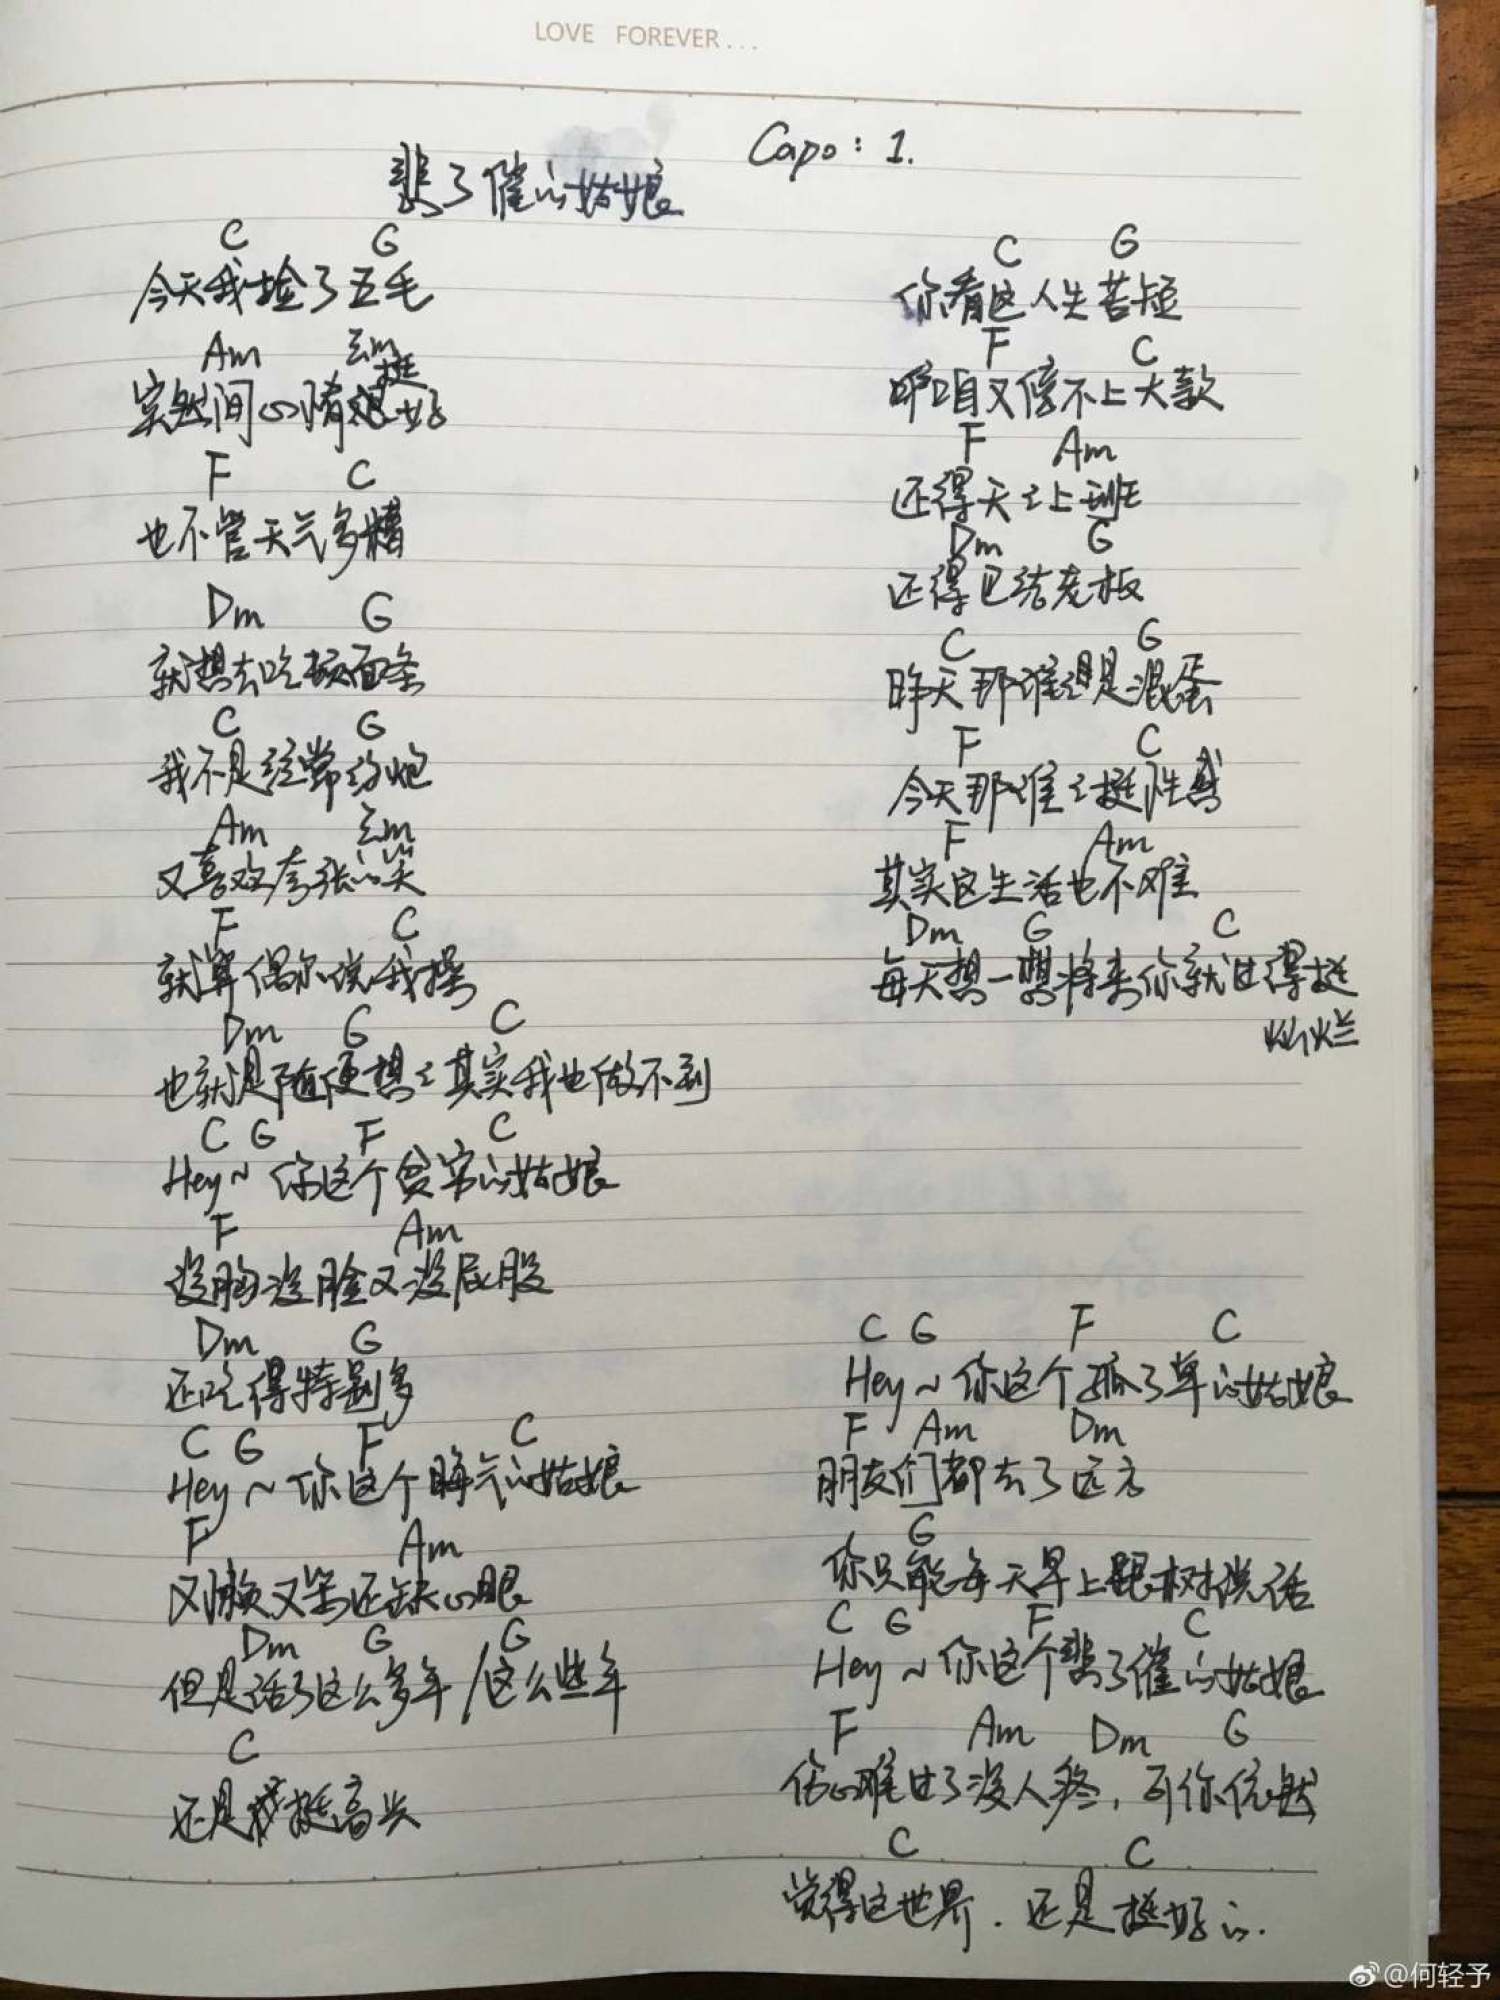 LOVE FOREVER...
Capo: 1.
悲了催的姑娘
C G
今天我捡了五毛
Am Em
突然间心情挺好
F C
也不管天气多糟
Dm G
就想去吃顿面条
C G
我不是经常约炮
Am Em
又喜欢夸张的笑
F C
就算偶尔说我操
Dm G C
也就是随便想想其实我也做不到
C G F C
Hey~ 你这个贫穷的姑娘
F Am
没胸没脸又没屁股
Dm G
还吃得特别多
C G F C
Hey~ 你这个晦气的姑娘
F Am
又懒又笨还缺心眼
Dm G G
但是活了这么多年/这么些年
C
还是挺高兴
C G
你看这人生苦短
F C
咱又傍不上大款
F Am
还得天天上班
Dm G
还得巴结老板
C G
昨天那谁谁是混蛋
F C
今天那谁谁挺性感
F Am
其实这生活也不难
Dm G C
每天想一想将来你就过得挺
灿烂
C G F C
Hey~ 你这个孤了单的姑娘
F Am Dm
朋友们都去了远方
G
你只能每天早上跟树说话
C G F C
Hey~ 你这个悲了催的姑娘
F Am Dm G
伤心难过了没人疼，可你依然
C C
觉得这世界. 还是挺好的.
@何轻予